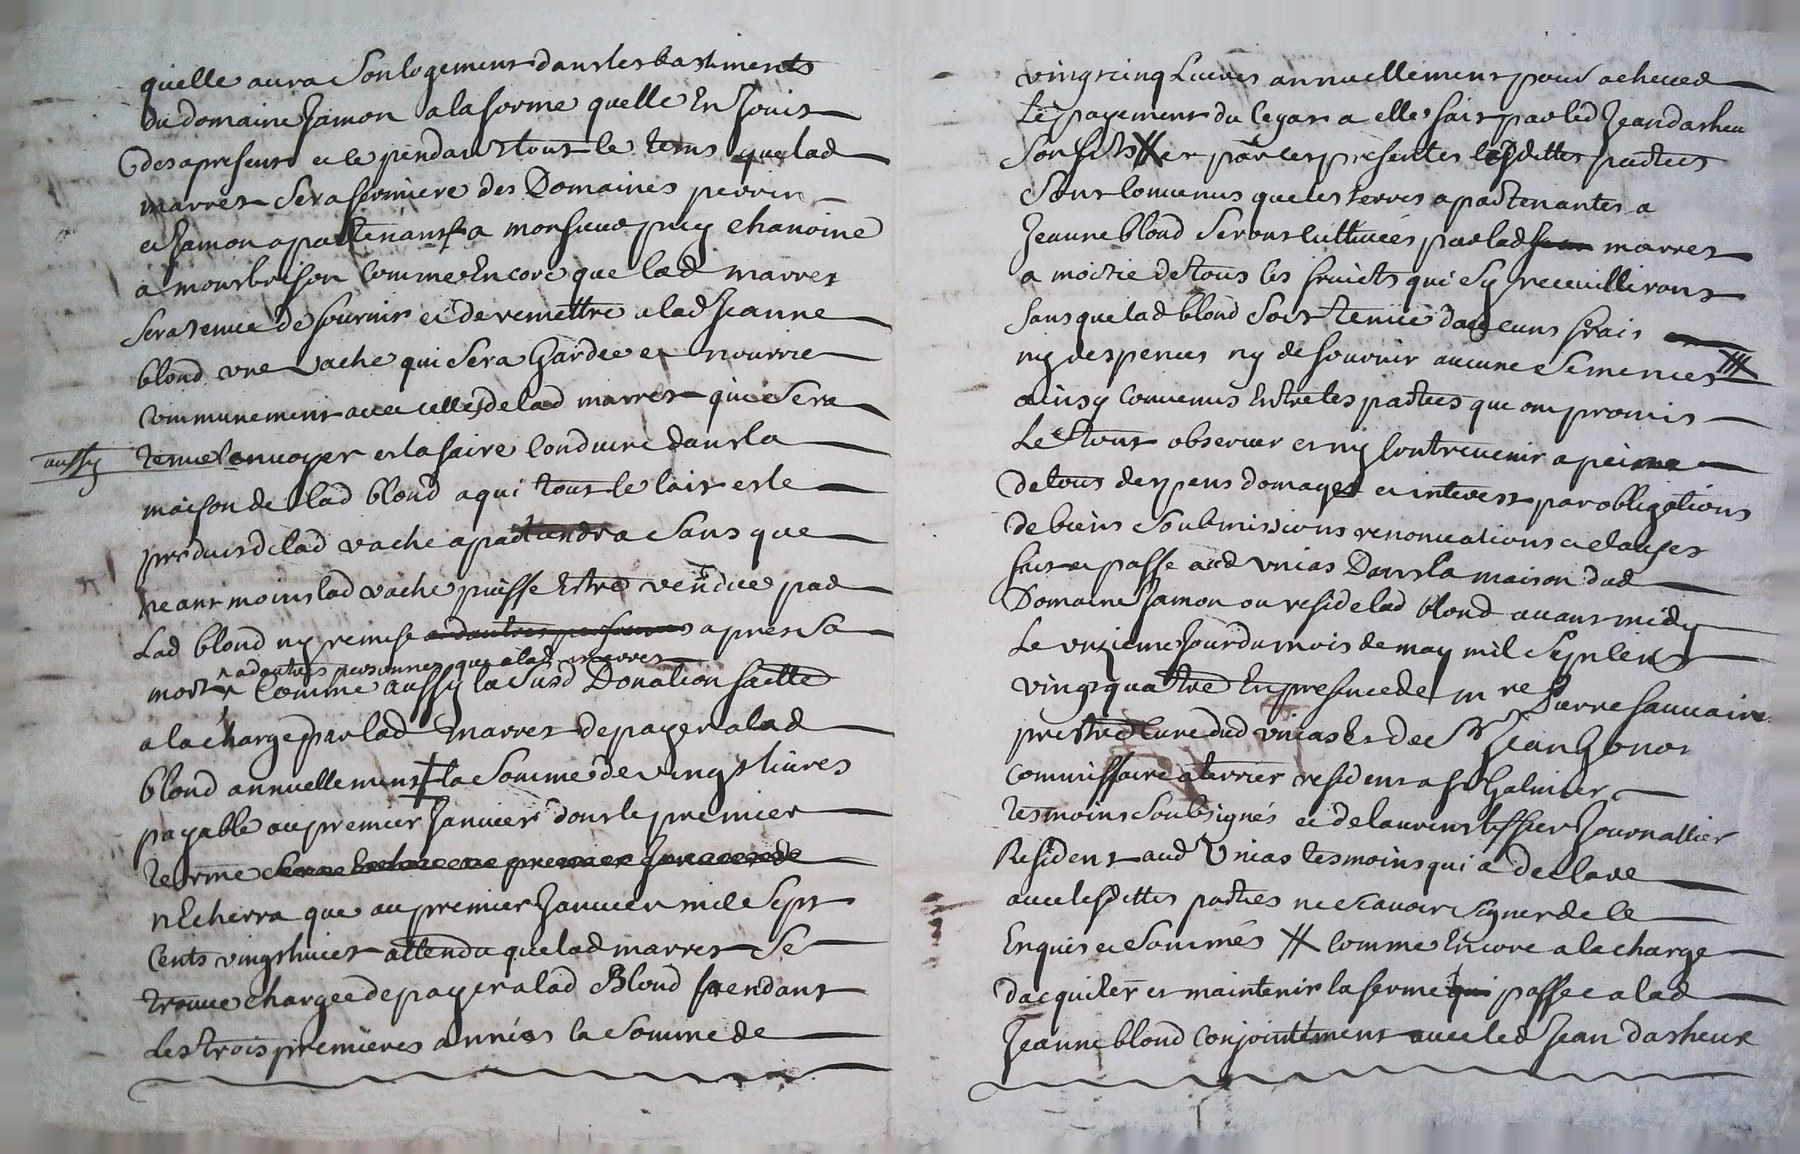 quelle aura son logement dans les bastiments
du domaine Jamon a la forme quelle En Jouit
des apresent et le pendant tout le tems que lad
marret sera fermiere des Domaines perrin
et Jamon apartenants a monsieur puy chanoine
a montbrison comme Encore que lad marret
sera tenue de fournir et de remettre a lad Jeanne
blond une vache qui sera Gardee et nourrie
communement avec celles de lad marret qui sera
aussy tenue lenvoyer et la faire conduire dans la
maison de lad blond a qui tout le lait et le
produit de lad vache apartiendra sans que
neant moins lad vache puisse Estre vendue par
Lad blond ny remise a dautres personnes apres sa
a dautres personnes que a lad marret
mort comme aussy la susd Donation faitte
a la charge par lad marret de payer a lad
blond annuellement la somme de vingt livres
payable au premier Janvier dont le premier
terme
n Echerra que au premier Janvier mil sept
cents vingt huict attendu que lad marret se
trouve chargee de payer a lad Blond pendant
Les trois premieres années la somme de
vingt cinq Livres annuellement pour achever
Le payement du legat a elle fait par led Jean dasheu
son fils et par ces presentes lesdittes parties
sont convenus que les terres apartenantes a
Jeanne blond seront cultivées par lad marret
a moitie de tous les fruicts qui sy receuilliront
sans que lad blond soit tenue daucuns frais
ny despences ny de fournir aucune semences
ainsy convenus Entre les parties que ont promis
Le tout observer et ny contrevenir a peine
de tous despens domages et interest par obligations
de biens soubmissions renonciations et clauses
fait et passe aud unias Dans la maison dud
Domaine Jamon ou reside lad blond avant midy
Le unzieme Jour du mois de may mil sept cent
vingt quatre En presence de mre Pierre sauvaire
prestre Cure dud unias Et de Sr Jean Gonon
commissaire a terrier resident a st Galmier
tesmoins soubsignés et de laurens tissier Journallier
Resident aud Unias tesmoins qui a declare
avec lesdittes parties ne scavoir signer de ce
Enquis et sommés # comme Encore a la charge
dacquiter et maintenir la ferme passee a lad
Jeanne blond conjointement avec led Jean dasheux